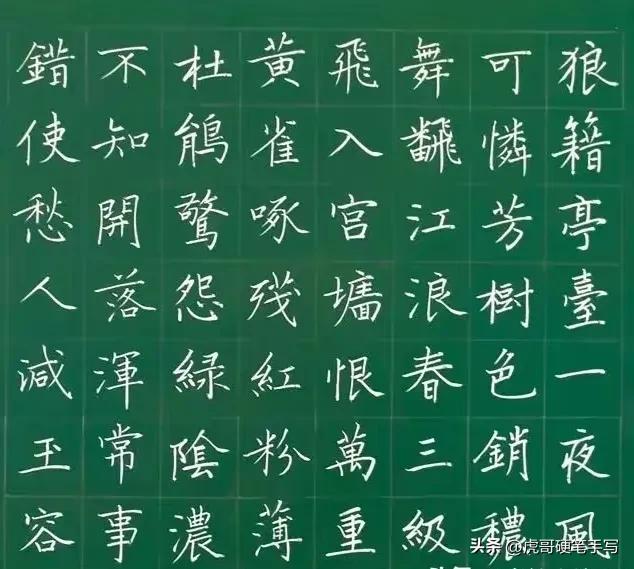 狼籍亭臺一夜風
可憐芳樹色銷穠
舞飜江浪春三級
飛入宫墻恨萬重
黄雀啄殘紅粉薄
杜鵑驚怨緑陰濃
不知開落渾常事
錯使愁人減玉容
头条 @虎哥硬笔手写